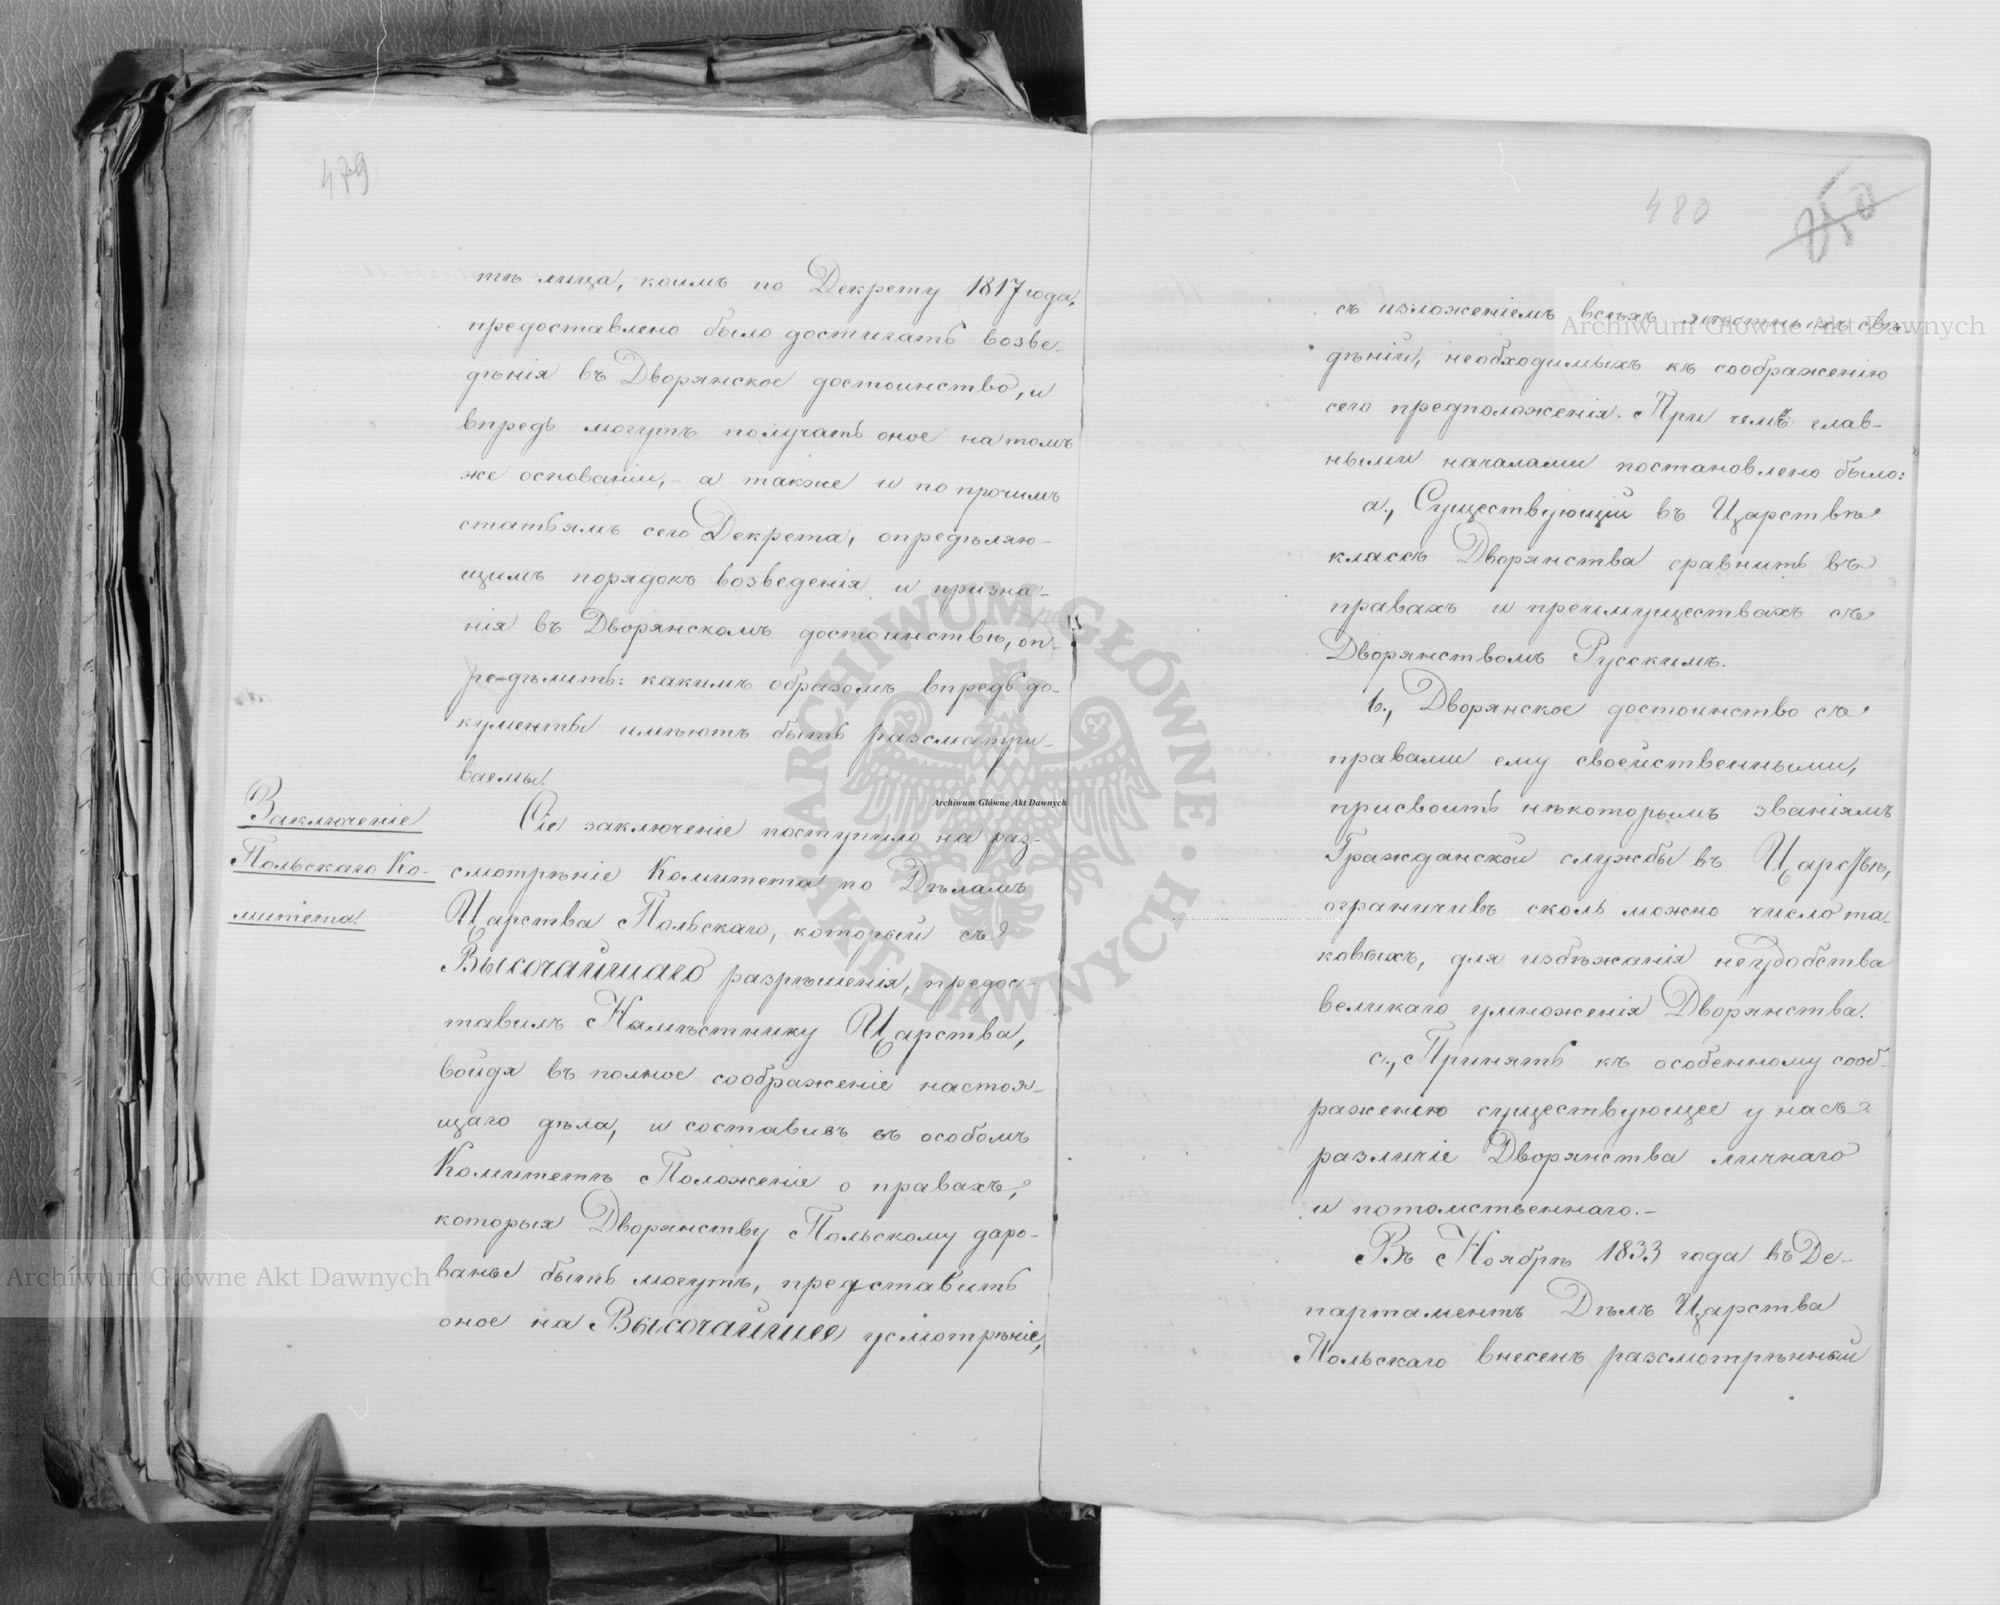 479
тѣ лица, коимъ по Декрету 1817 года,
предоставлено было достигать возве-
денія въ Дворянское достоинство, и
впредь могутъ получать оное на томъ
же основаніи, - а также и по прочимъ
статьямъ сего Декрета, опредѣляю-
щимъ порядокъ возведенія и призна-
нія въ Дворянскомъ достоинствѣ, оп-
ре-дѣлить: какимъ образомъ впредь до-
кументы имѣютъ быть разсматри-
ваемы.
Заключеніе
Польскаго Ко-
митета.
Сіе заключеніе поступило на раз-
смотрѣніе Комитета по Дѣламъ
Царства Польскаго, который съ
Высочайшаго разрѣшенія, предос-
тавилъ Намѣстнику Царства,
войдя въ полное соображеніе настоя-
щаго дѣла, и составивъ въ особомъ
Комитетѣ Положеніе о правахъ,
которыя Дворянству Польскому даро-
ваны быть могутъ, представить
оное на Высочайшее усмотрѣніе,
480
250
съ изложеніемъ всѣхъ мѣстныхъ свѣ-
дѣній, необходимыхъ къ соображенію
сего предположенія. При чемъ глав-
ными началами постановлено было:
а., Существующій въ Царствѣ
классъ Дворянства сравнить въ
правахъ и преимуществахъ съ
Дворянствомъ Русскимъ.
b., Дворянское достоинство съ
правами ему свойственными,
присвоить нѣкоторымъ званіямъ
Гражданской службы въ Царствѣ,
ограничивъ сколь можно число та-
ковыхъ, для избѣжанія неудобства
великаго умноженія Дворянства.
с., Принять къ особенному сооб-
раженію существующее у насъ
различіе Дворянства личнаго
и потомственнаго. -
Въ Ноябрѣ 1833 года въ Де-
партаментъ Дѣлъ Царства
Польскаго внесенъ разсмотрѣнный
Archiwum Główne Akt Dawnych
Archiwum Główne Akt Dawnych
Archiwum Główne Akt Dawnych
ARCHIWUM GŁÓWNE · AKT DAWNYCH ·